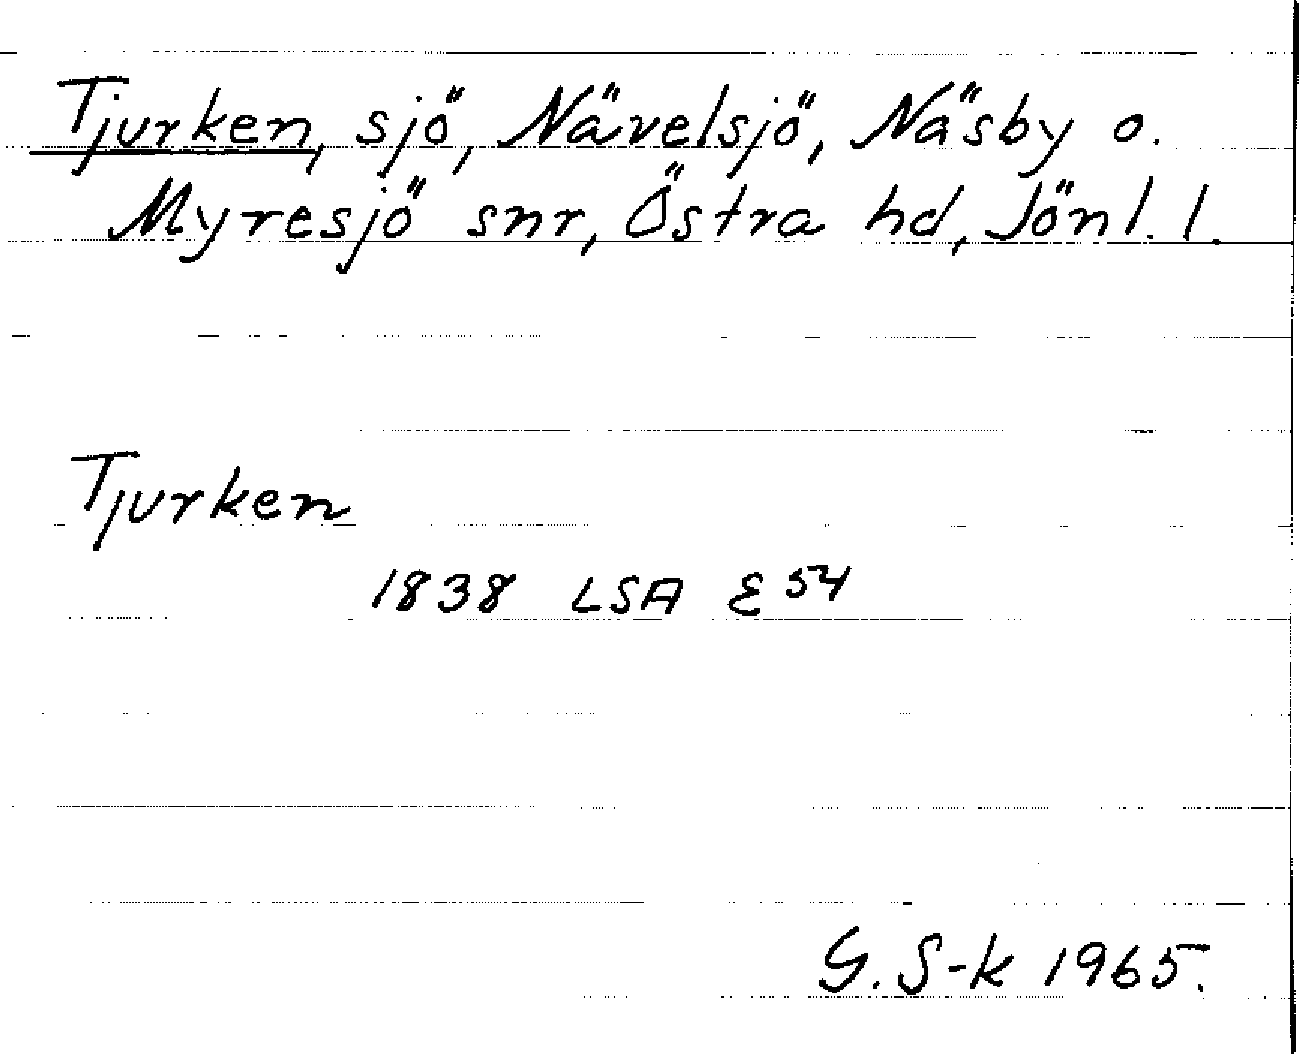 Tjurken, sjö, Nävelsjö, Näsby o.
Myresjö snr, Östra hd, Jönl. l.
Tjurken
1838 LSA E 54
G. S-k 1965.